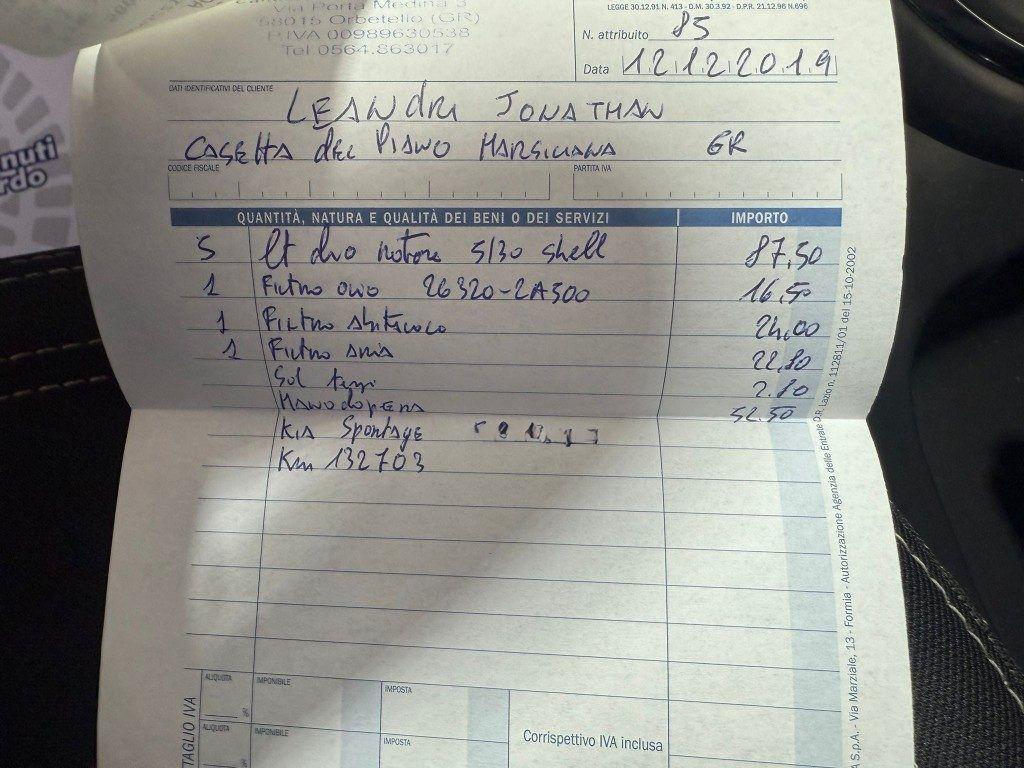 Via Porta Medina 3
58015 Orbetello (GR)
P.IVA 00989630538
Tel 0564.863017
LEGGE 30.12.91 N. 413 - D.M. 30.3.92 - D.P.R. 21.12.96 N.696
N. attribuito 85
Data 12122019
DATI IDENTIFICATIVI DEL CLIENTE
LEANDRI JONATHAN
CASETTA DEL PIANO MARSILIANA GR
CODICE FISCALE
PARTITA IVA
QUANTITÀ, NATURA E QUALITÀ DEI BENI O DEI SERVIZI IMPORTO
5 lt olio motore 5/30 shell 87,50
1 Filtro olio 26320-2A500 16,50
1 Filtro abitacolo 24,00
1 Filtro aria 22,80
Sol 2.80
Manodopera 52.50
KIA Sportage
Km 132703
ALIQUOTA IMPONIBILE IMPOSTA
%
ALIQUOTA IMPONIBILE IMPOSTA
Corrispettivo IVA inclusa
TAGLIO IVA
S.p.A. - Via Marziale, 13 - Formia - Autorizzazione Agenzia delle Entrate D.R. Lazio n. 112811/01 del 15-10-2002
nuti
rdo